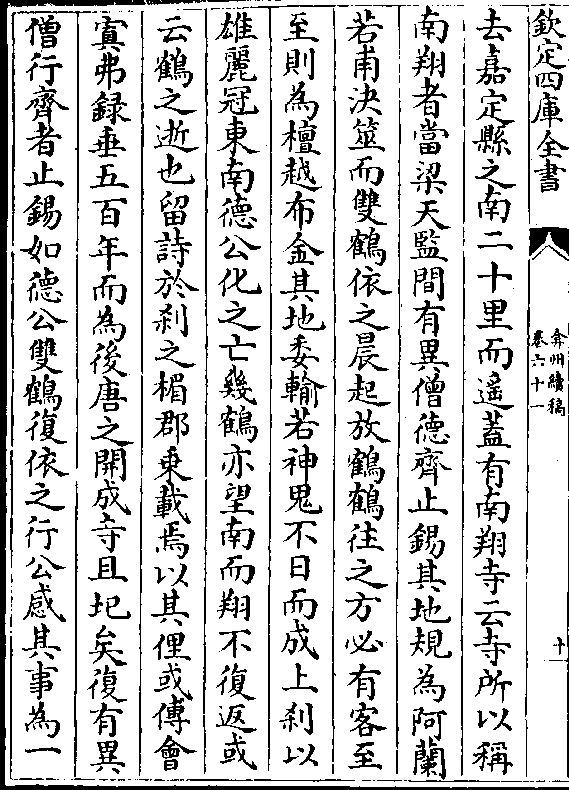 欽定四庫全書
弇州續稿
卷六十一
十
去嘉定縣之南二十里而遥蓋有南翔寺云寺所以稱
南翔者當梁天監間有異僧德齊止錫其地規為阿蘭
若甫決筮而雙鶴依之晨起放鶴鶴往之方必有客至
至則為檀越布金其地委輸若神鬼不日而成上刹以
雄麗冠東南德公化之亡幾鶴亦望南而翔不復返或
云鶴之逝也留詩於刹之楣郡乗載焉以其俚或傅會
寘弗録垂五百年而為後唐之開成寺且圮矣復有異
僧行齊者止錫如德公雙鶴復依之行公感其事為一